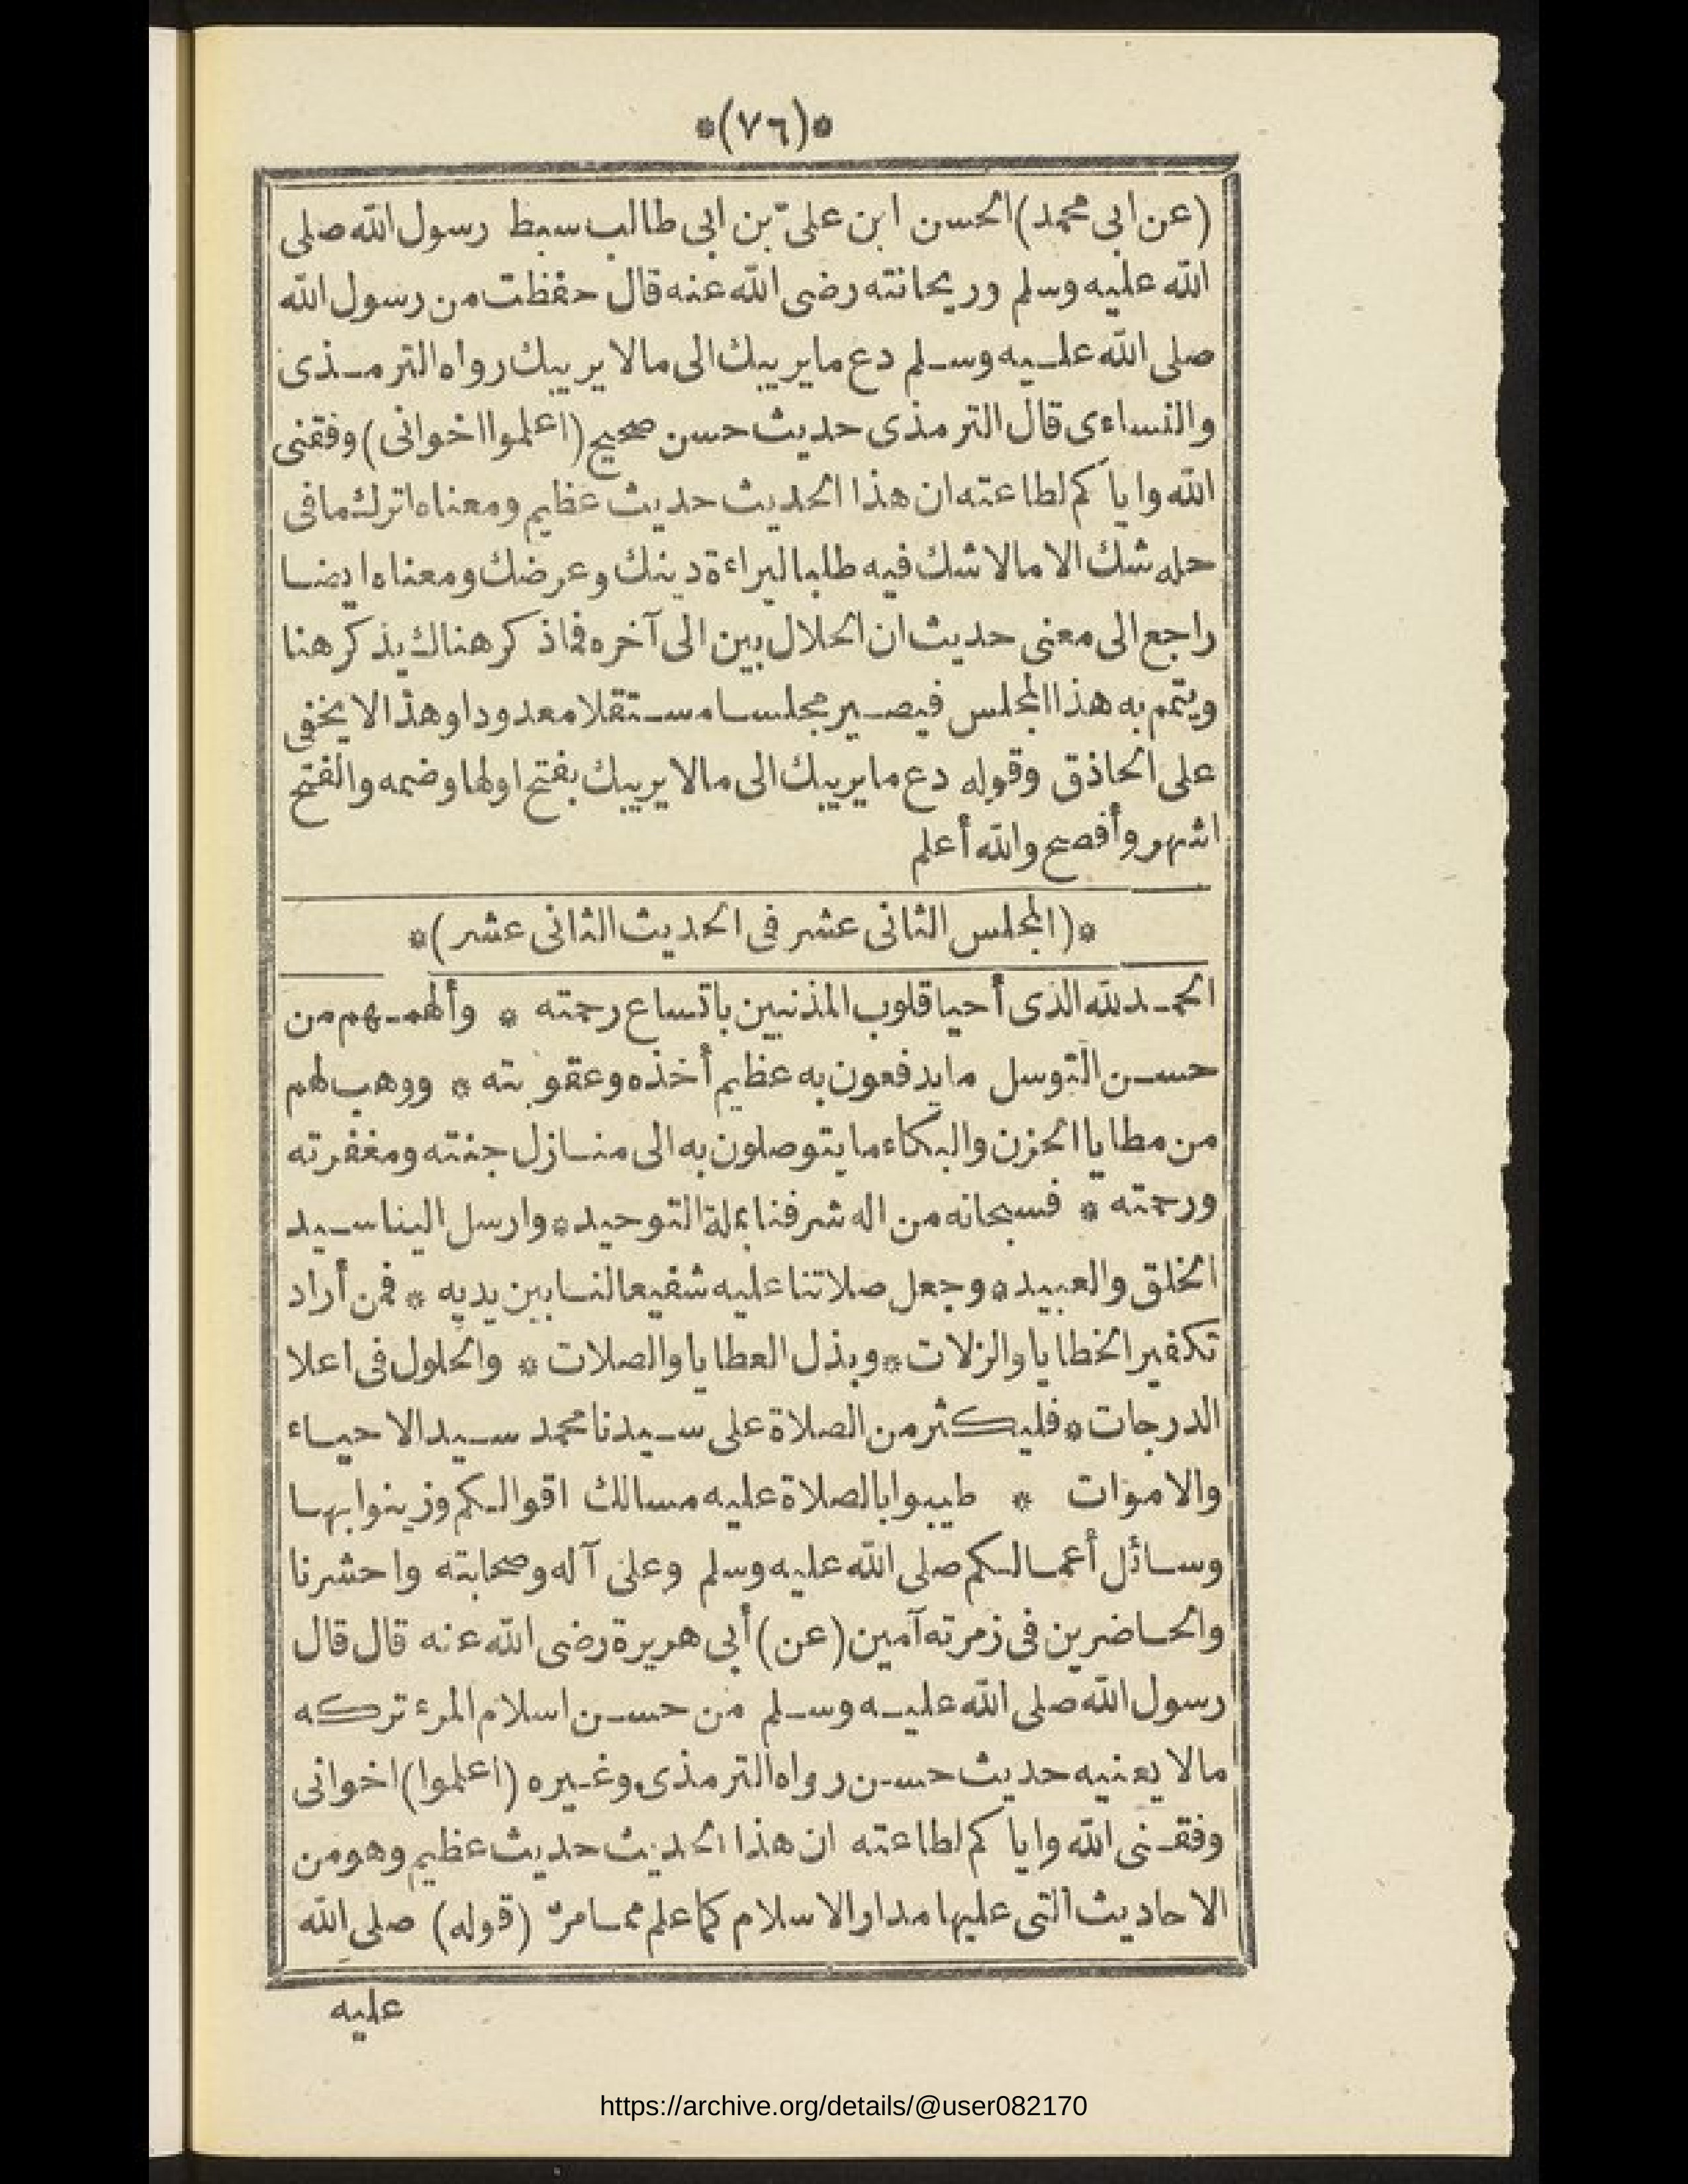 *(٧٦)*
(عن ابى محمد) الحسن ابن علىّ بن ابى طالب سبط رسول الله صلى
الله عليه وسلم وريحانته رضى الله عنه قال حفظت من رسول الله
صلى الله عليه وسلم دع ما يريبك الى مالا يريبك رواه الترمذى
والنساءى قال الترمذى حديث حسن صحيح (اعلموا اخوانى) وفقنى
الله واياكم لطاعته ان هذا الحديث حديث عظيم ومعناه اترك ما فى
حله شك الا مالا شك فيه طلبا لبراءة دينك وعرضك ومعناه ايضا
راجع الى معنى حديث ان الحلال بين الى آخره فما ذكر هناك يذكر هنا
ويتم به هذا المجلس فيصير مجلسا مستقلا معدودا وهذا لا يخفى
على الحاذق وقوله دع ما يريبك الى مالا يريبك بفتح اولها وضمه والفتح
اشهر وأفصح والله أعلم
*(المجلس الثانى عشر فى الحديث الثانى عشر)*
الحمد لله الذى أحيا قلوب المذنبين باتساع رحمته * وألهمهم من
حسن التوسل ما يدفعون به عظيم أخذه وعقوبته * ووهب لهم
من مطايا الحزن والبكاء ما يتوصلون به الى منازل جنته ومغفرته
ورحمته * فسبحانه من اله شرفنا بملة التوحيد * وارسل الينا سيد
الخلق والعبيد * وجعل صلاتنا عليه شفيعا لنا بين يديه * فمن أراد
تكفير الخطايا والزلات * وبذل العطايا والصلات * والحلول فى اعلا
الدرجات * فليكثر من الصلاة على سيدنا محمد سيد الاحياء
والاموات * طيبوا بالصلاة عليه مسالك اقوالكم وزينوا بها
وسائل أعمالكم صلى الله عليه وسلم وعلى آله وصحابته واحشرنا
والحاضرين فى زمرته آمين (عن) أبى هريرة رضى الله عنه قال قال
رسول الله صلى الله عليه وسلم من حسن اسلام المرء تركه
مالا يعنيه حديث حسن رواه الترمذى وغيره (اعلموا) اخوانى
وفقنى الله واياكم لطاعته ان هذا الحديث حديث عظيم وهو من
الاحاديث التى عليها مدار الاسلام كما علم مما مرّ (قوله) صلى الله
عليه
https://archive.org/details/@user082170